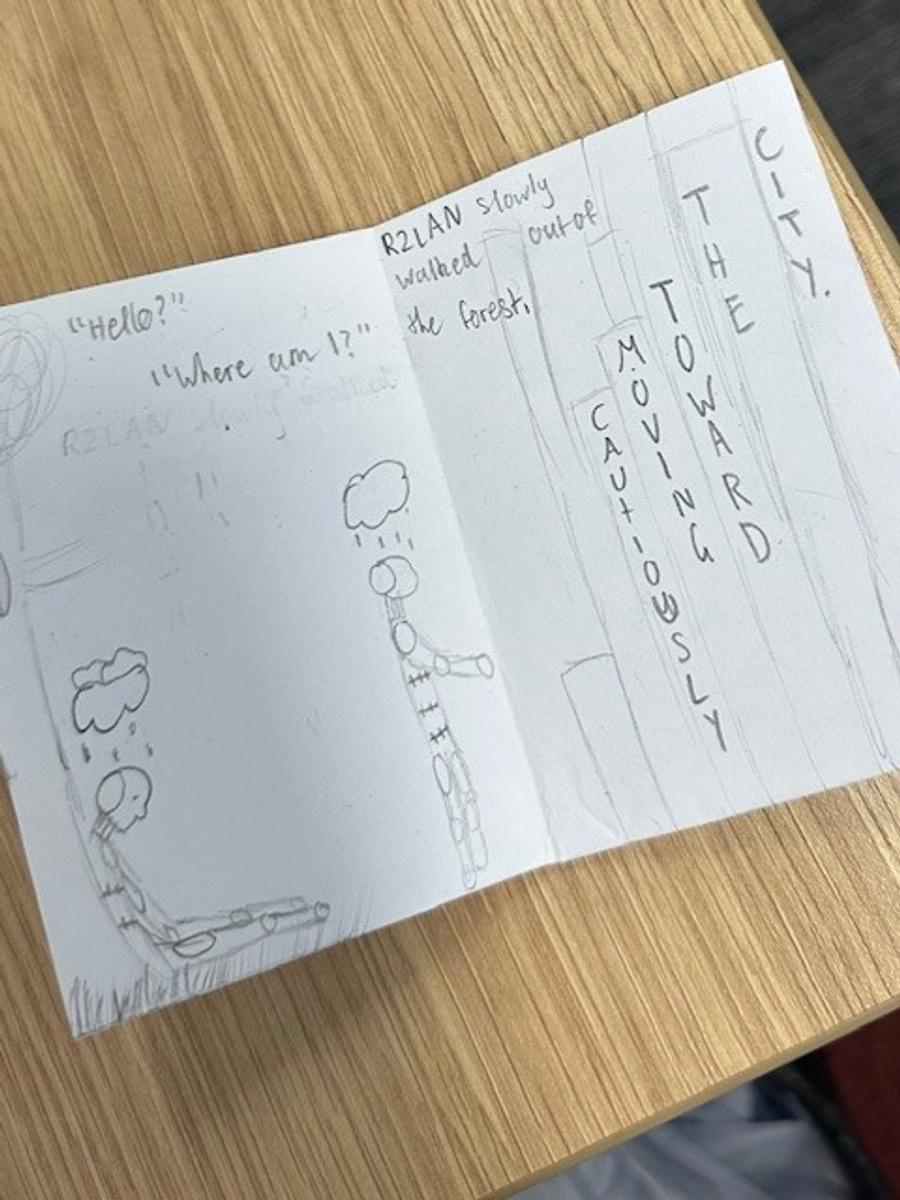 "Hello?"
"Where am I?"
R2LAN slowly walked
R2LAN slowly
walked out of
the forest.
CAUTIOUSLY
MOVING
TOWARD
THE
CITY.